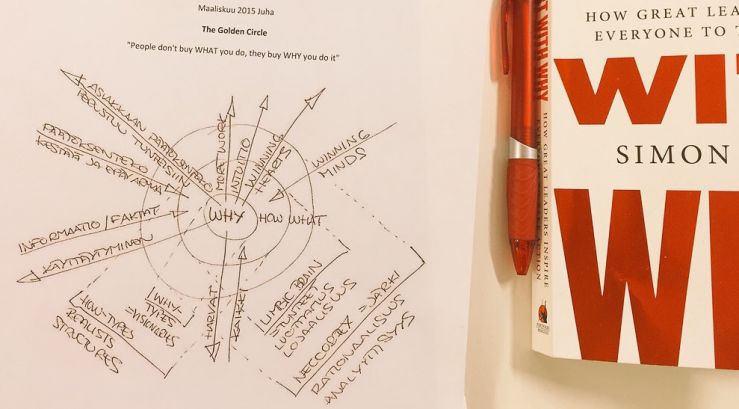 Maaliskuu 2015 Juha
The Golden Circle
"People don't buy WHAT you do, they buy WHY you do it"
ASIAKKAAN PÄÄTÖKSENTEKO
PERUSTUU TUNTEISIIN
PÄÄTÖKSENTEKO
KESTÄÄ JA EPÄVARMA
INFORMAATIO / FAKTAT
KÄYTTÄYTYMINEN
INTUITIO
WINNING
HEARTS
WINNING
MINDS
WHY
HOW
WHAT
HOW-TYPES
REALISTS
STRUCTURES
WHY-
TYPES
=VISIONEERS
HARVAT
KAIKKI
LIMBIC BRAIN
TUNTEET
LUOTTAMUS
LOJAALISUUS
NECCORTEX = JÄRKI
RATIONAALISUUS
ANALYYTTISYYS
WITH WHY
HOW GREAT LEADERS INSPIRE
HOW GREAT LEA
EVERYONE TO T
WIT
SIMON
W